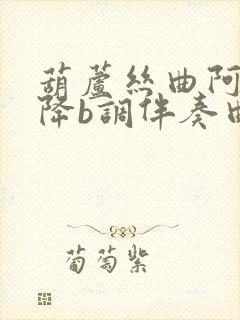 葫蘆絲曲阿
降b調伴奏曲
葡萄紫